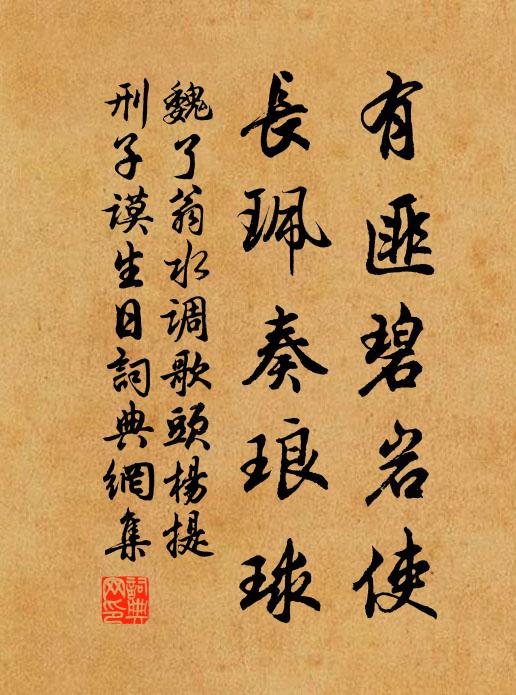 有匪碧岩使
長珮奏琅球
魏了翁水调歌頭楊提
刑子謨生日詞典網集
詞典網印